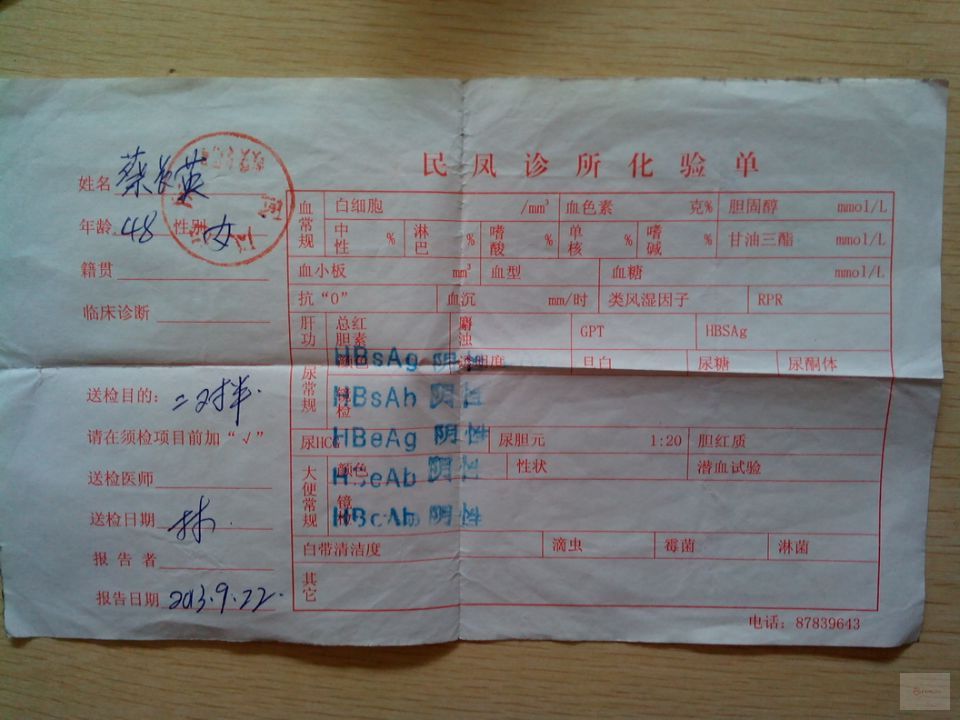 民凤诊所化验单
姓名 蔡长英
年龄 48 性别 女
籍贯
临床诊断
送检目的: 二对半.
请在须检项目前加“√”
送检医师
送检日期
报告者
报告日期 2013.9.22.
血常规 白细胞 /mm³ 血色素 克% 胆固醇 mmol/L
中性 % 淋巴 % 嗜酸 % 单核 % 嗜碱 % 甘油三酯 mmol/L
血小板 mm³ 血型 血糖 mmol/L
抗“O” 血沉 mm/时 类风湿因子 RPR
肝功 总红胆素 麝浊 GPT HBSAg
尿常规 颜色 透明度 旦白 尿糖 尿酮体
镜检
尿HCG 尿胆元 1:20 胆红质
大便常规 颜色 性状 潜血试验
镜检
白带清洁度 滴虫 霉菌 淋菌
其它
HBsAg 阴性
HBsAb 阴性
HBeAg 阴性
HBeAb 阴性
HBcAb 阴性
电话: 87839643